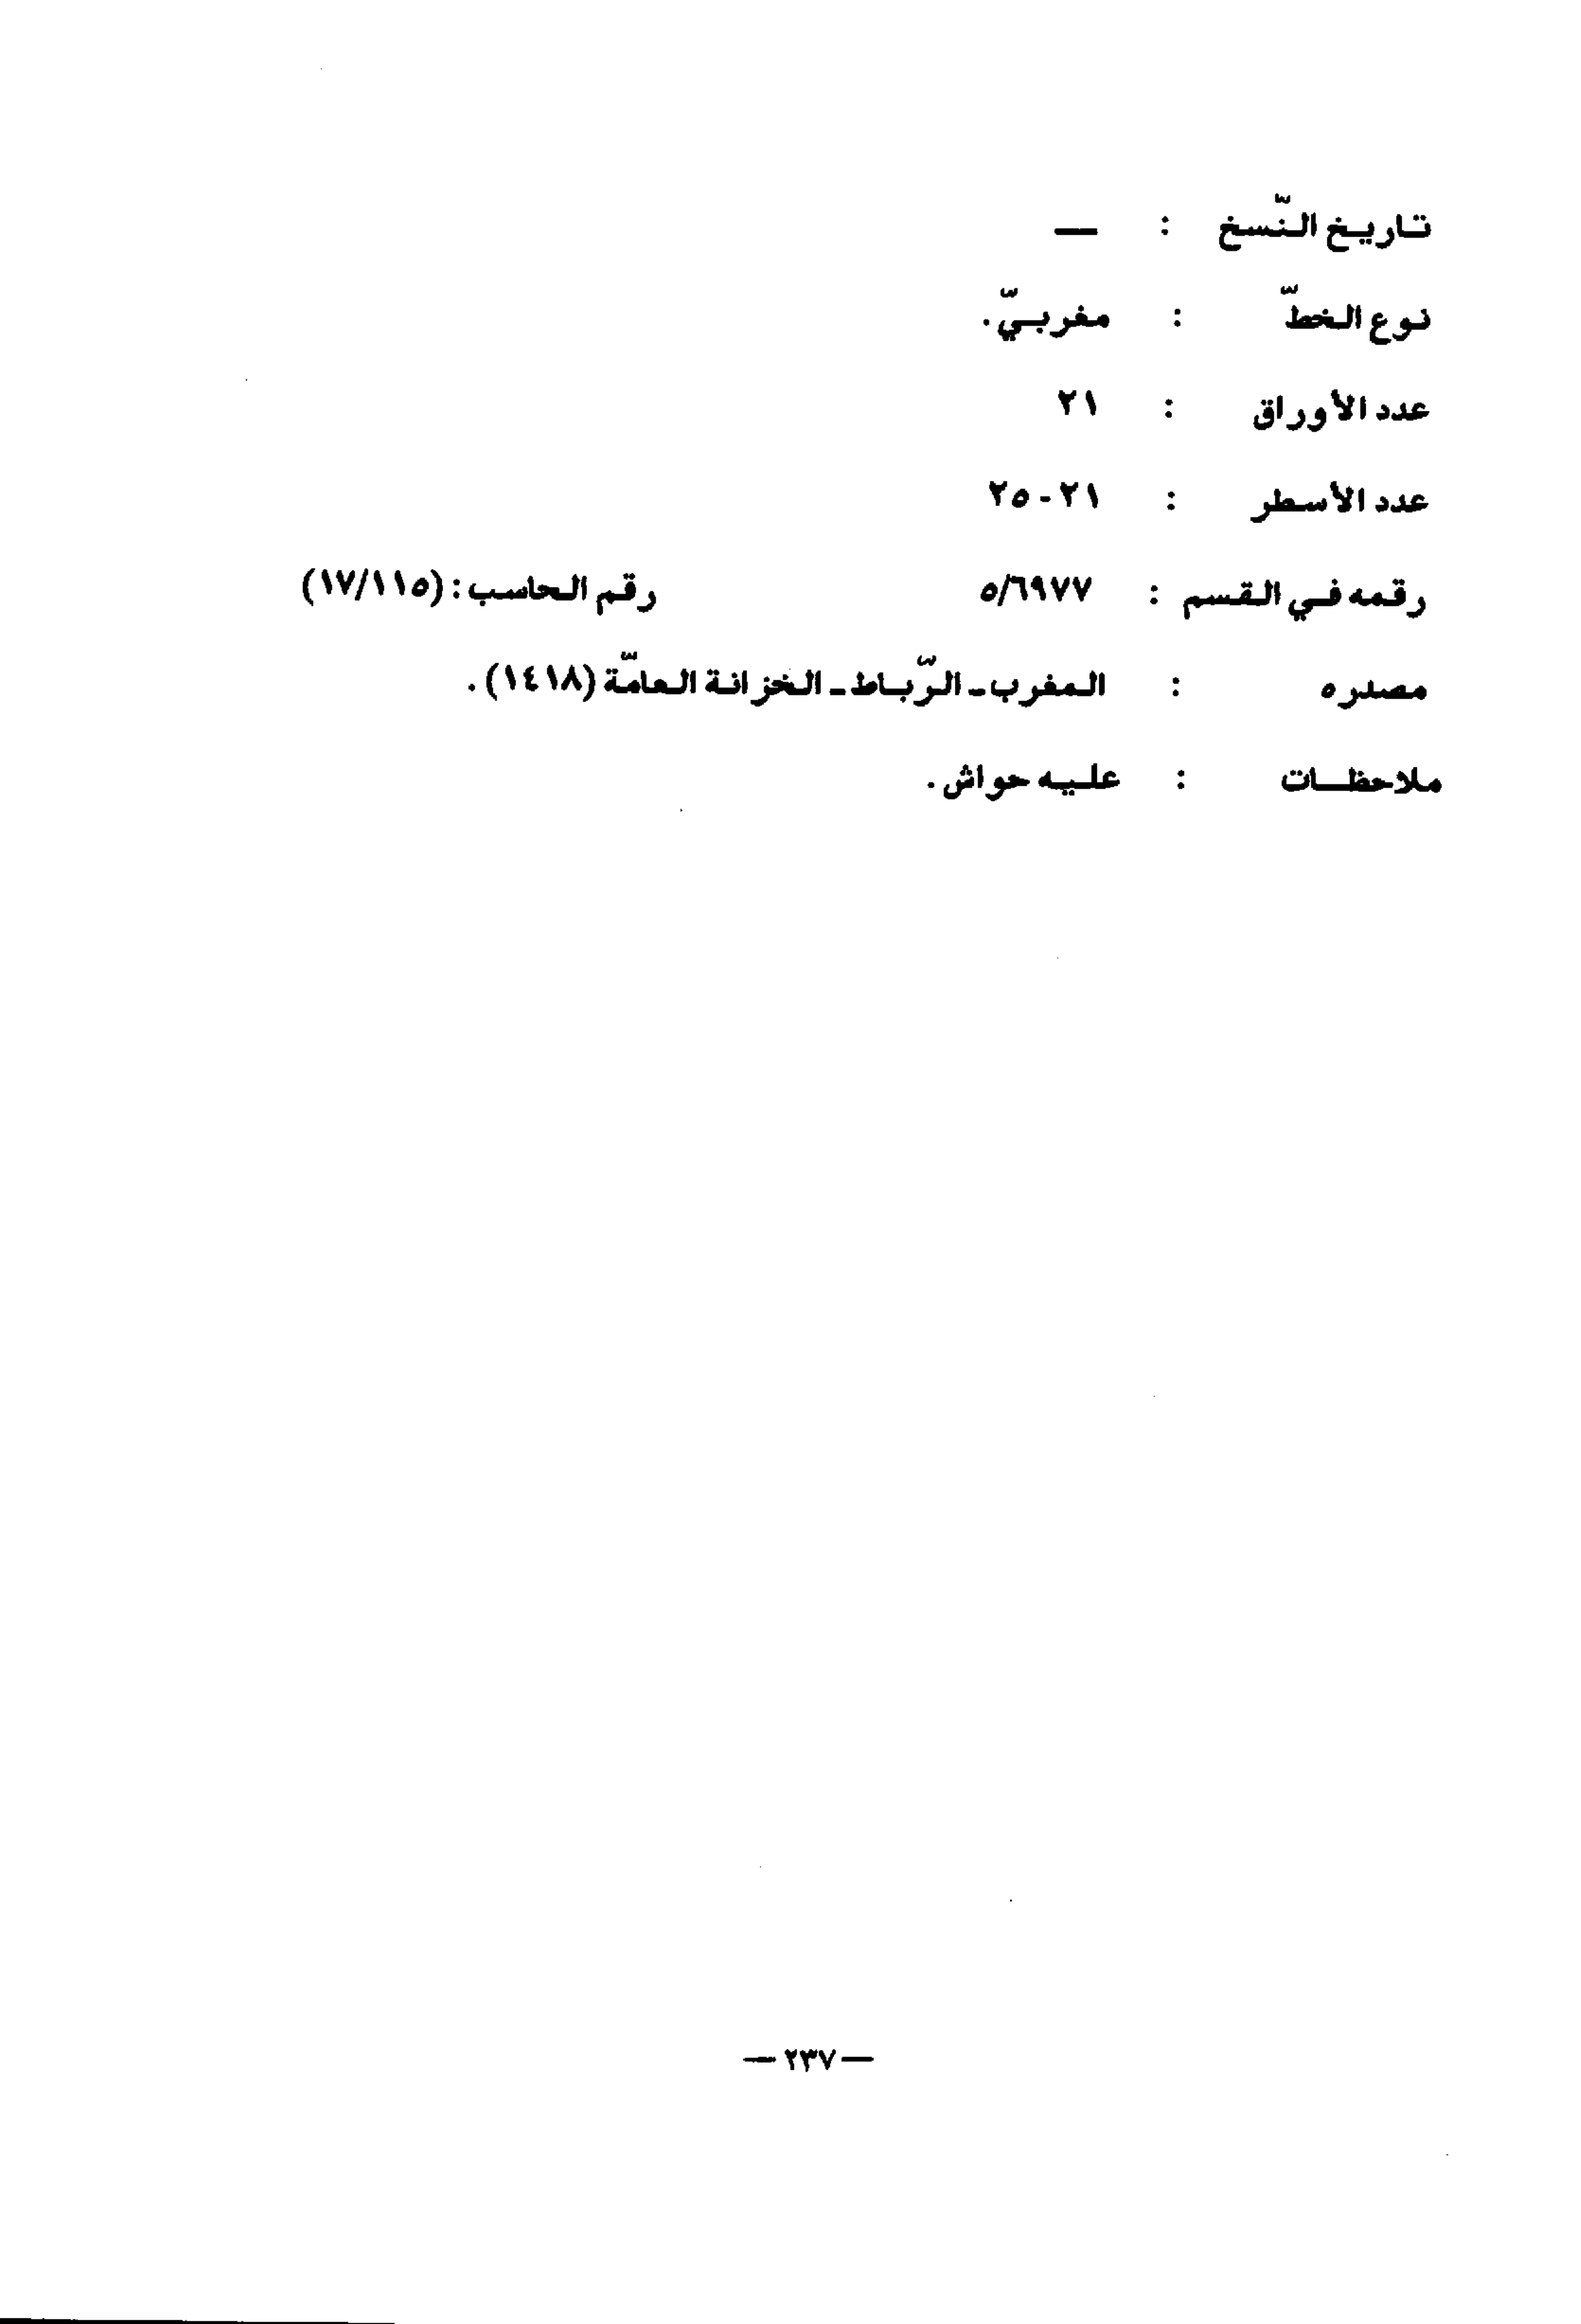 تاريخ النّسخ : —
نوع الخطّ : مغربيّ.
عدد الأوراق : ٢١
عدد الأسطر : ٢١ - ٢٥
رقمه في القسم : ٥/٦٩٧٧ رقم الحاسب : (١٧/١١٥)
مصدره : المغرب - الرّباط - الخزانة العامّة (١٤١٨).
ملاحظات : عليه حواش.
— ٢٣٧ —